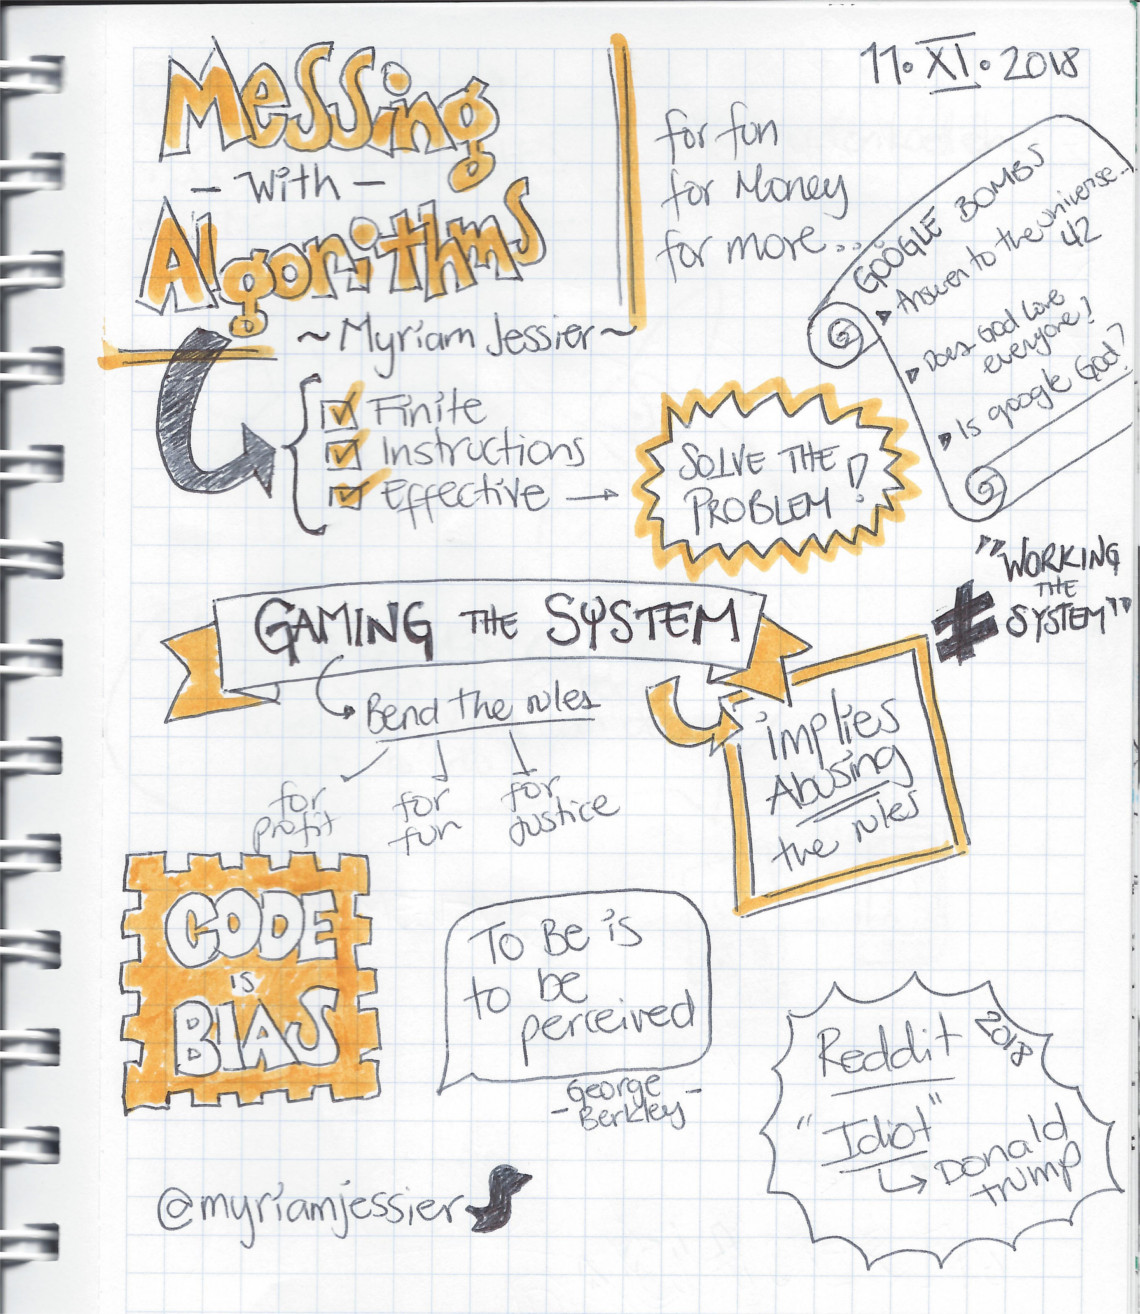 Messing
- with -
Algorithms
~ Myriam Jessier ~
11 · XI · 2018
for fun
for Money
for more...
GOOGLE BOMBS
Answer to the universe...
42
Does God love
everyone?
Is google God?
Finite
Instructions
Effective →
SOLVE THE
PROBLEM!
GAMING THE SYSTEM
≠ "WORKING
THE
SYSTEM"
Bend the rules
for
profit
for
fun
for
Justice
implies
Abusing
the rules
CODE
is
BIAS
To Be is
to be
perceived
- George
Berkley -
Reddit 2018
"Idiot"
Donald
trump
@myriamjessier